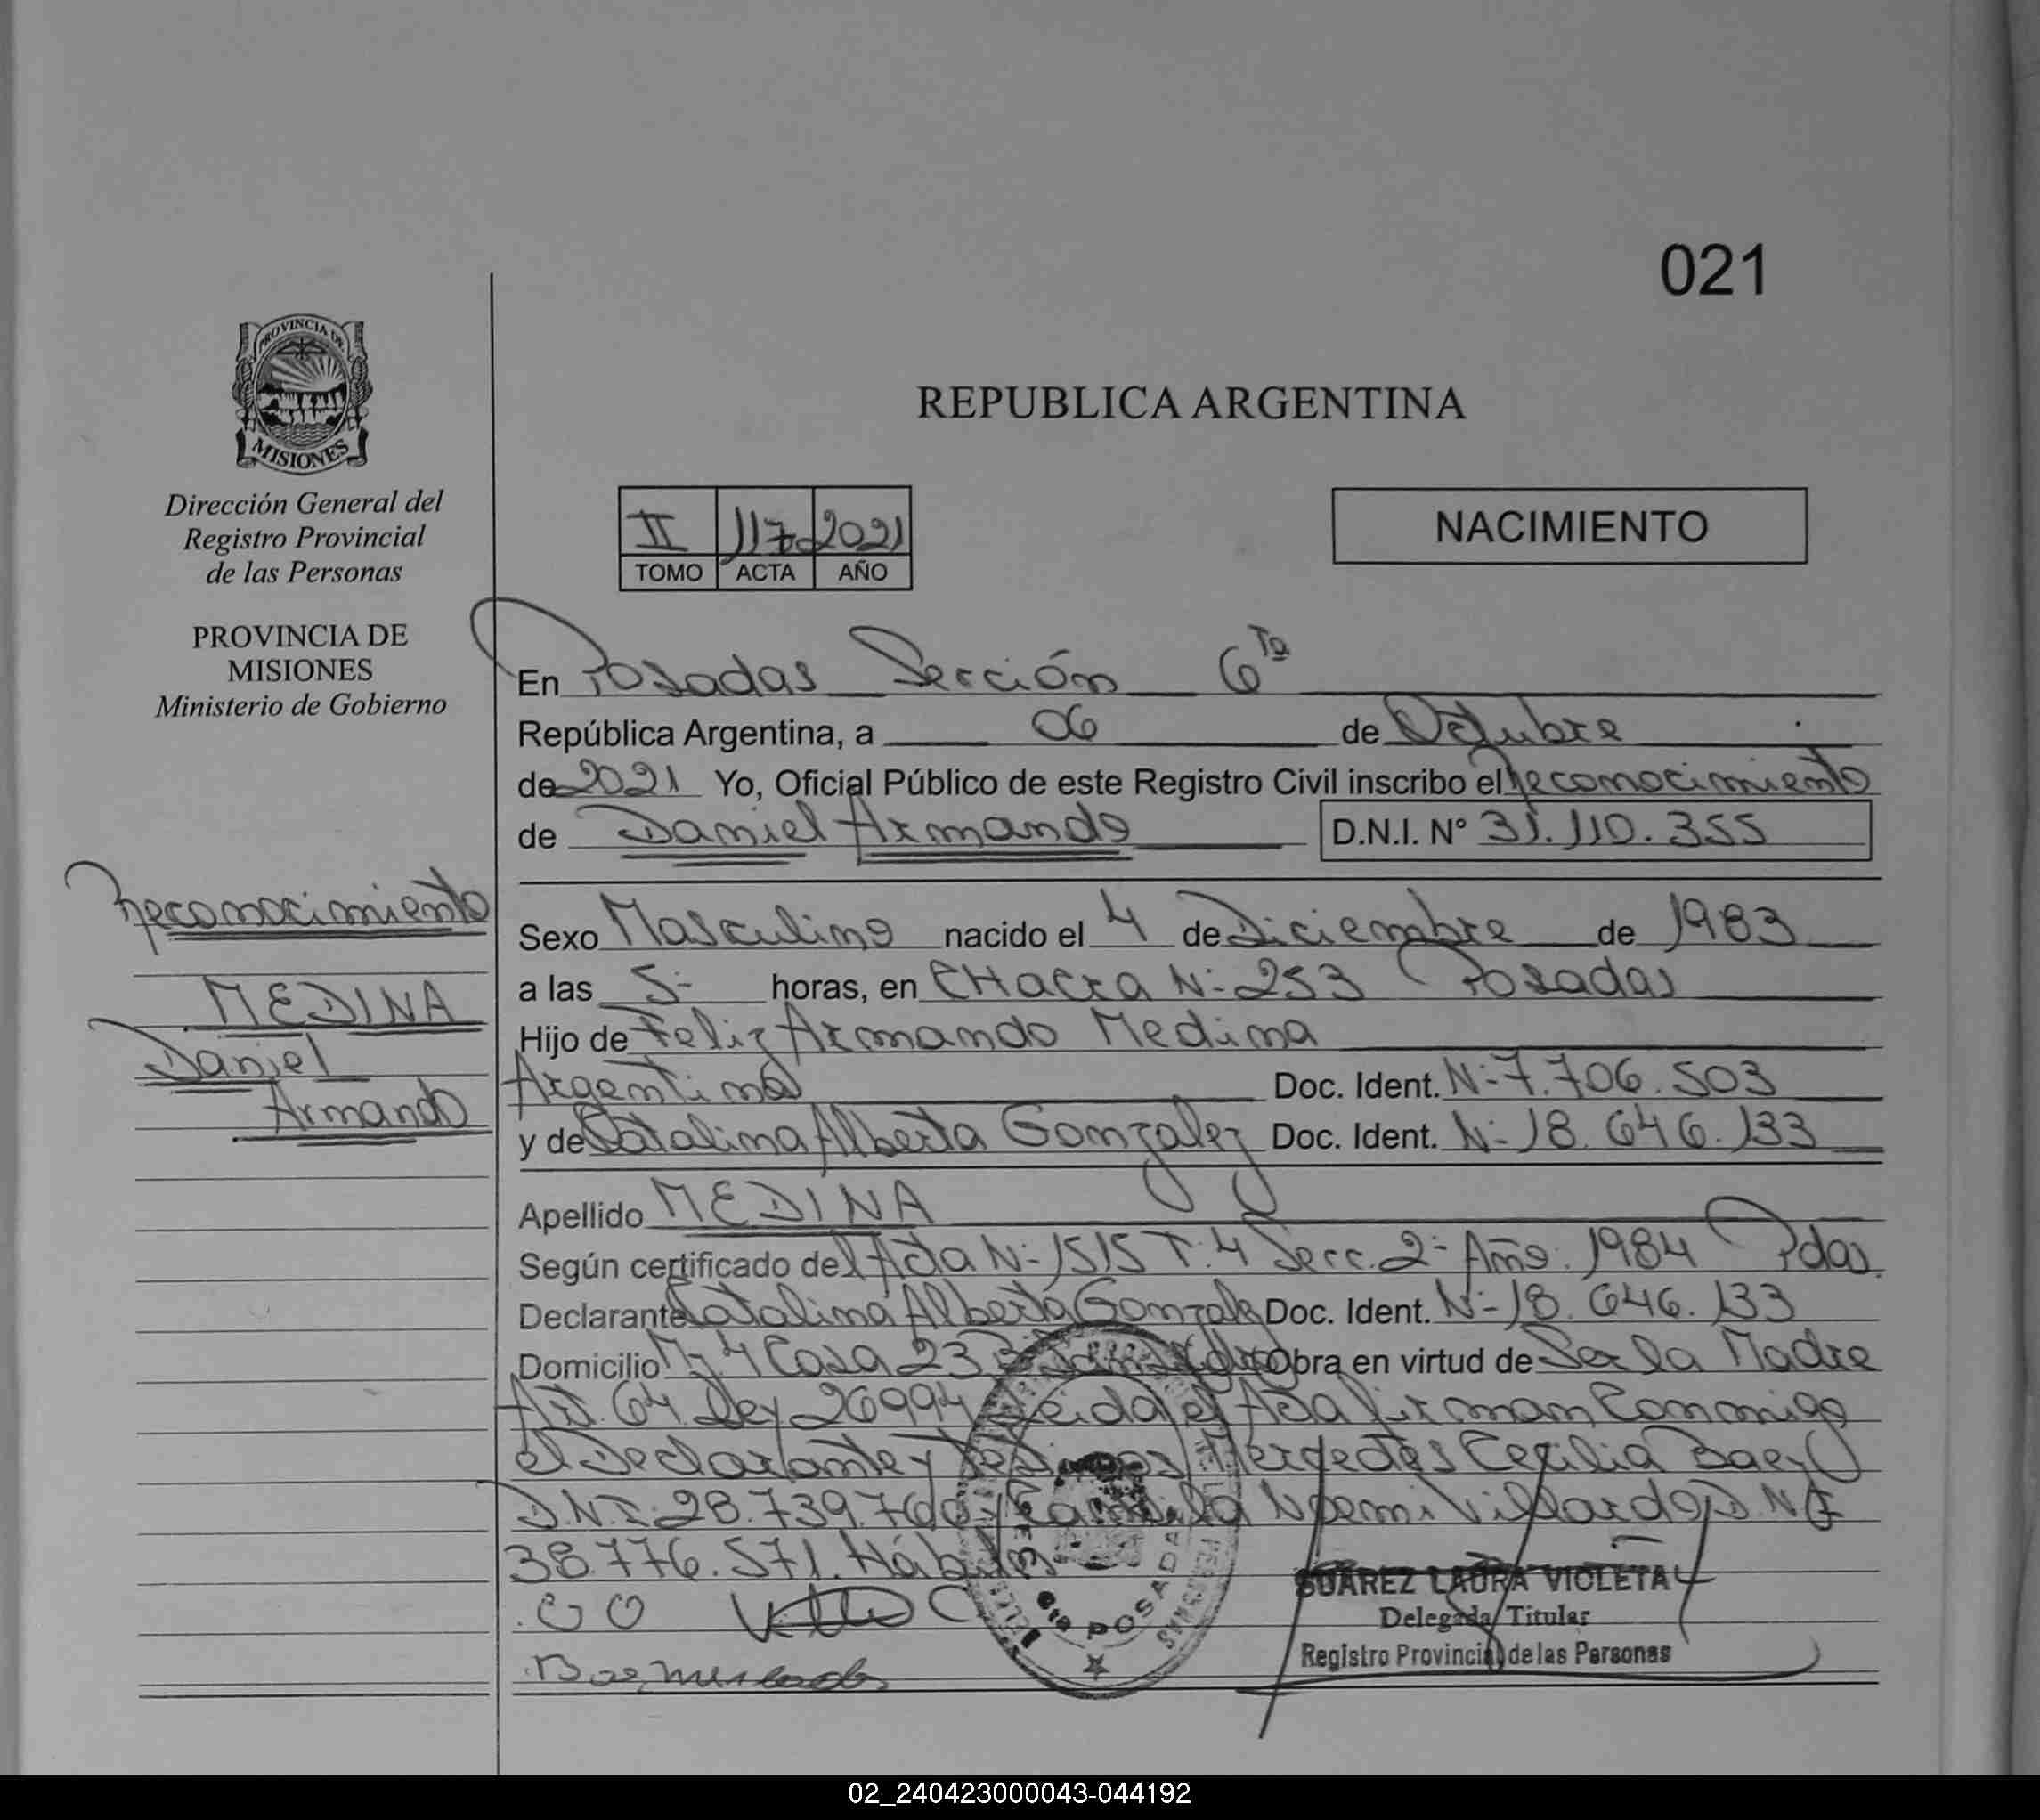 021
PROVINCIA DE
MISIONES
Dirección General del
Registro Provincial
de las Personas
PROVINCIA DE
MISIONES
Ministerio de Gobierno
Reconocimiento
MEDINA
Daniel
Armando
REPUBLICA ARGENTINA
II 117 2021
TOMO ACTA AÑO
NACIMIENTO
En Posadas Sección 6ta
República Argentina, a 06 de Octubre
de 2021 Yo, Oficial Público de este Registro Civil inscribo el Reconocimiento
de Daniel Armando D.N.I. N° 31.110.355
Sexo Masculino nacido el 4 de Diciembre de 1983
a las 5- horas, en CHacra N- 253 Posadas
Hijo de Feliz Armando Medina
Argentina Doc. Ident. N- 7.706.503
y de Catalina Alberta Gonzalez Doc. Ident. N- 18.646.133
Apellido MEDINA
Según certificado del Acta N- 1515 T. 4 Secc. 2- Año. 1984 Pdas.
Declarante Catalina Alberta Gonzalez Doc. Ident. N- 18.646.133
Domicilio Mz 4 Casa 23 Obra en virtud de Ser la Madre
Art. 64 Ley 26994 Leida el Acta firman Conmigo
el Declarante y Testigos Mercedes Cecilia Baez
D.N.I. 28.739.760 y Camila Noemi Villardo D.N.I
38.776.571. Hábiles
POSADAS
SUAREZ LAURA VIOLETA
Delegada Titular
Registro Provincial de las Personas
02_240423000043-044192